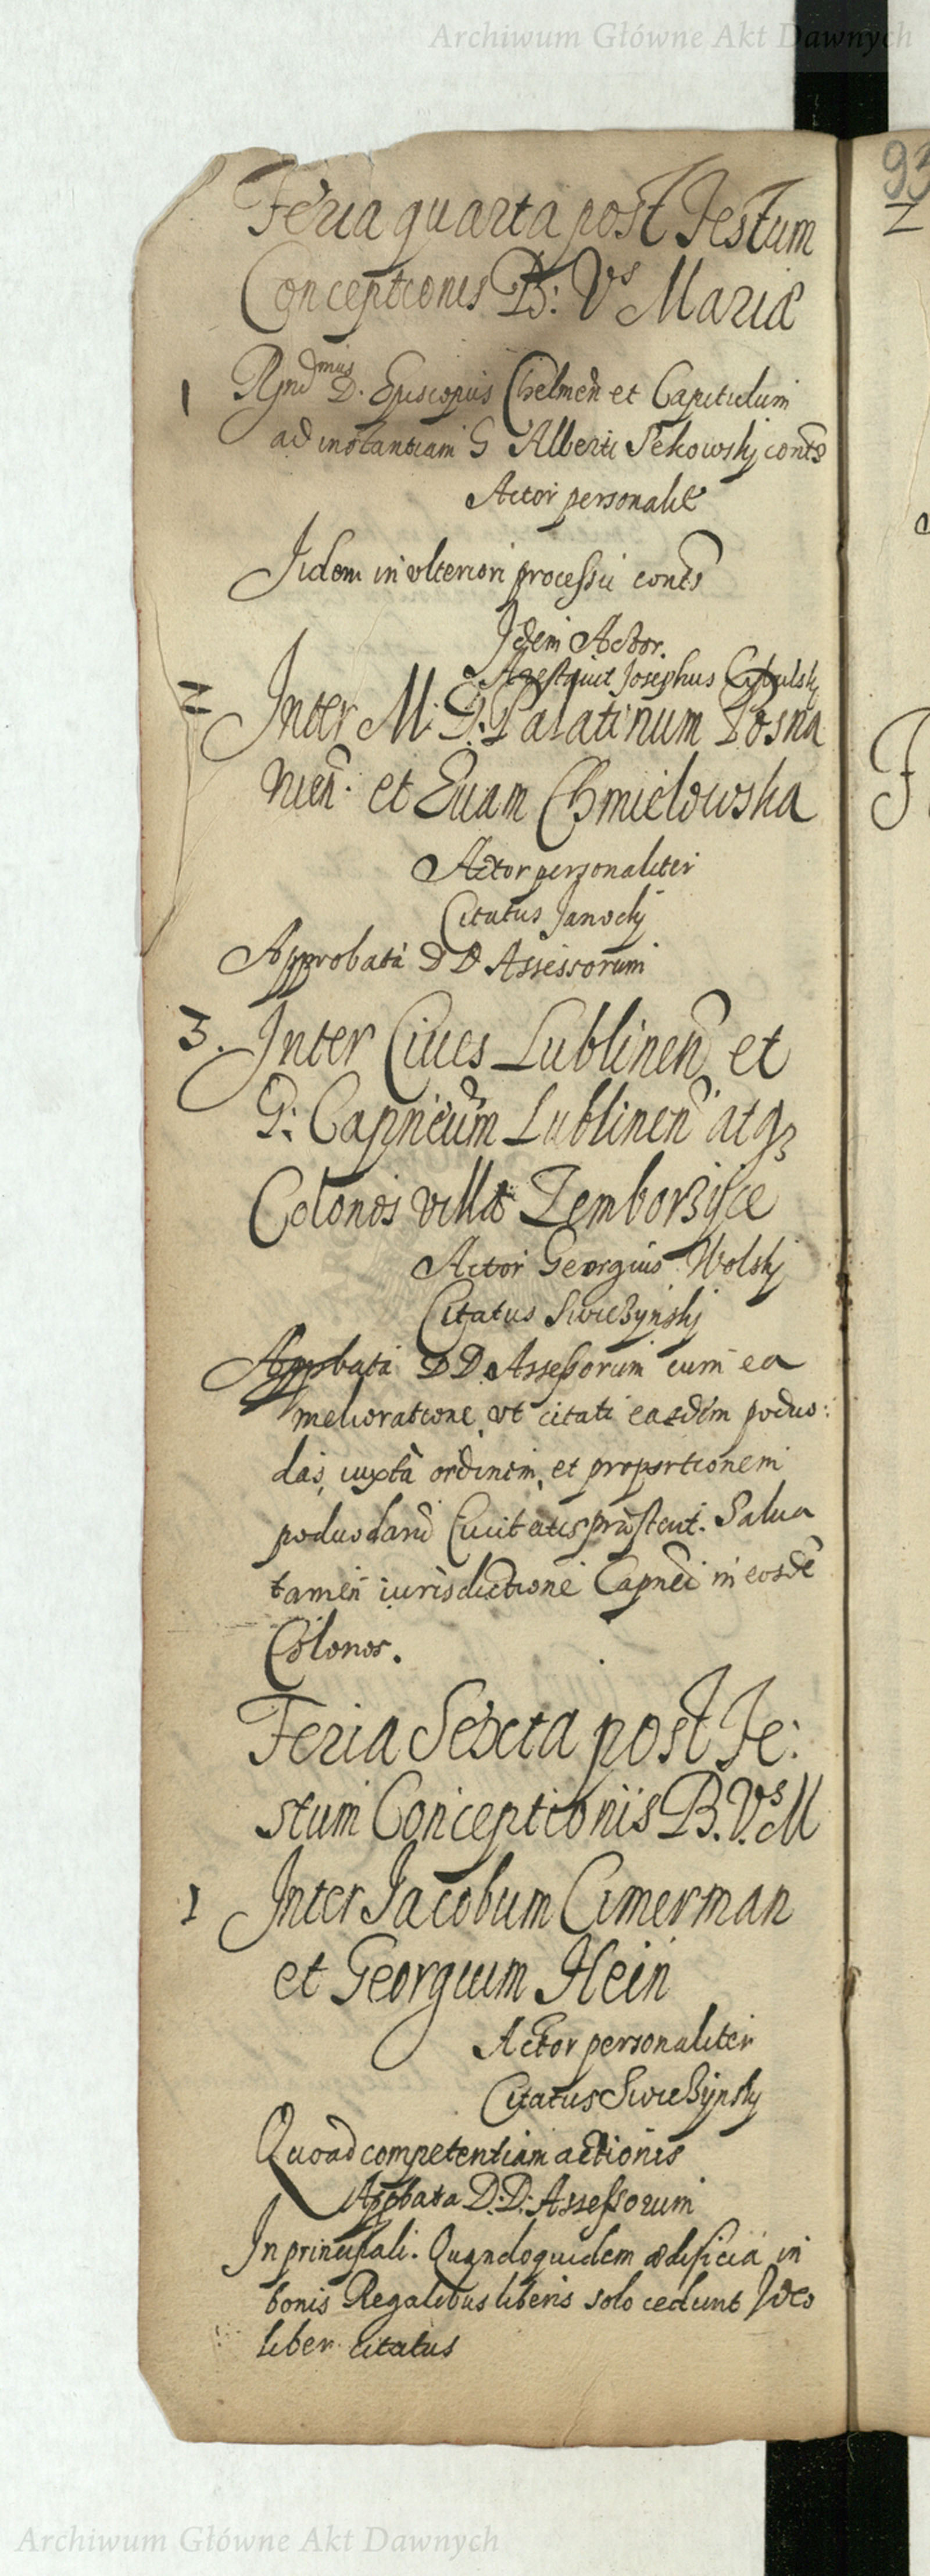 Archiwum Główne Akt Dawnych
93
Feria quarta post Festum
Conceptionis B: Vs Mariæ
1 Rynd mus D. Episcopus Chelmen et Capitulum
ad instantiam G Alberti Sekowskj conts
Actor personalit
Iidem in vlteriori processu conts
Idem Actor.
Arestauit Josephus Cybulskj
2 Inter M. G. Palatinum Posna
nien. et Euam Chmielowska
Actor personaliter
Citatus Janockj
Approbata D D Assessorum
3. Inter Ciues Lublinen et
G: Capneum Lublinen atq3
Colonos villæ Zemborzyce
Actor Georgius Wolskj
Citatus Swiezynskj
Approbata D D Assessorum cum ea
melioratione, vt citati easdem podwo:
das, iuxta ordinem, et proportionem
podwodarū Ciuitatis præstent. Salua
tamen iurisdictione Capnei in eosde
Colonos.
Feria Sexta post Fe:
stum Conceptionis B. V.s M
1 Inter Jacobum Cimerman
et Georgium Hein
Actor personaliter
Citatus Swiezynskj
Quoad competentiam actionis
Appbata D: D: Assessorum
In principali. Quandoquidem ædificia in
bonis Regalibus liberis solo cedunt Ideo
liber citatus
Archiwum Główne Akt Dawnych